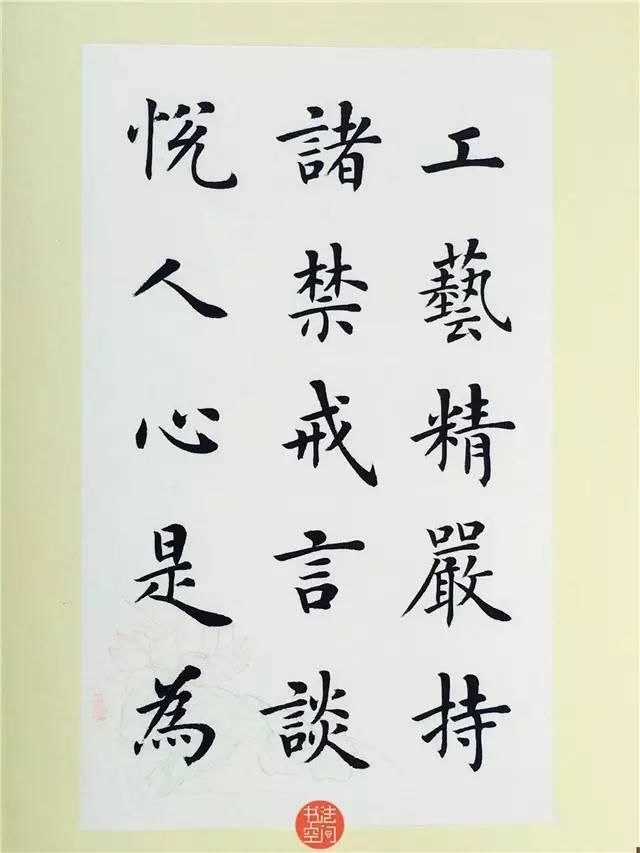 工藝精嚴持
諸禁戒言談
悅人心是為
书法空间